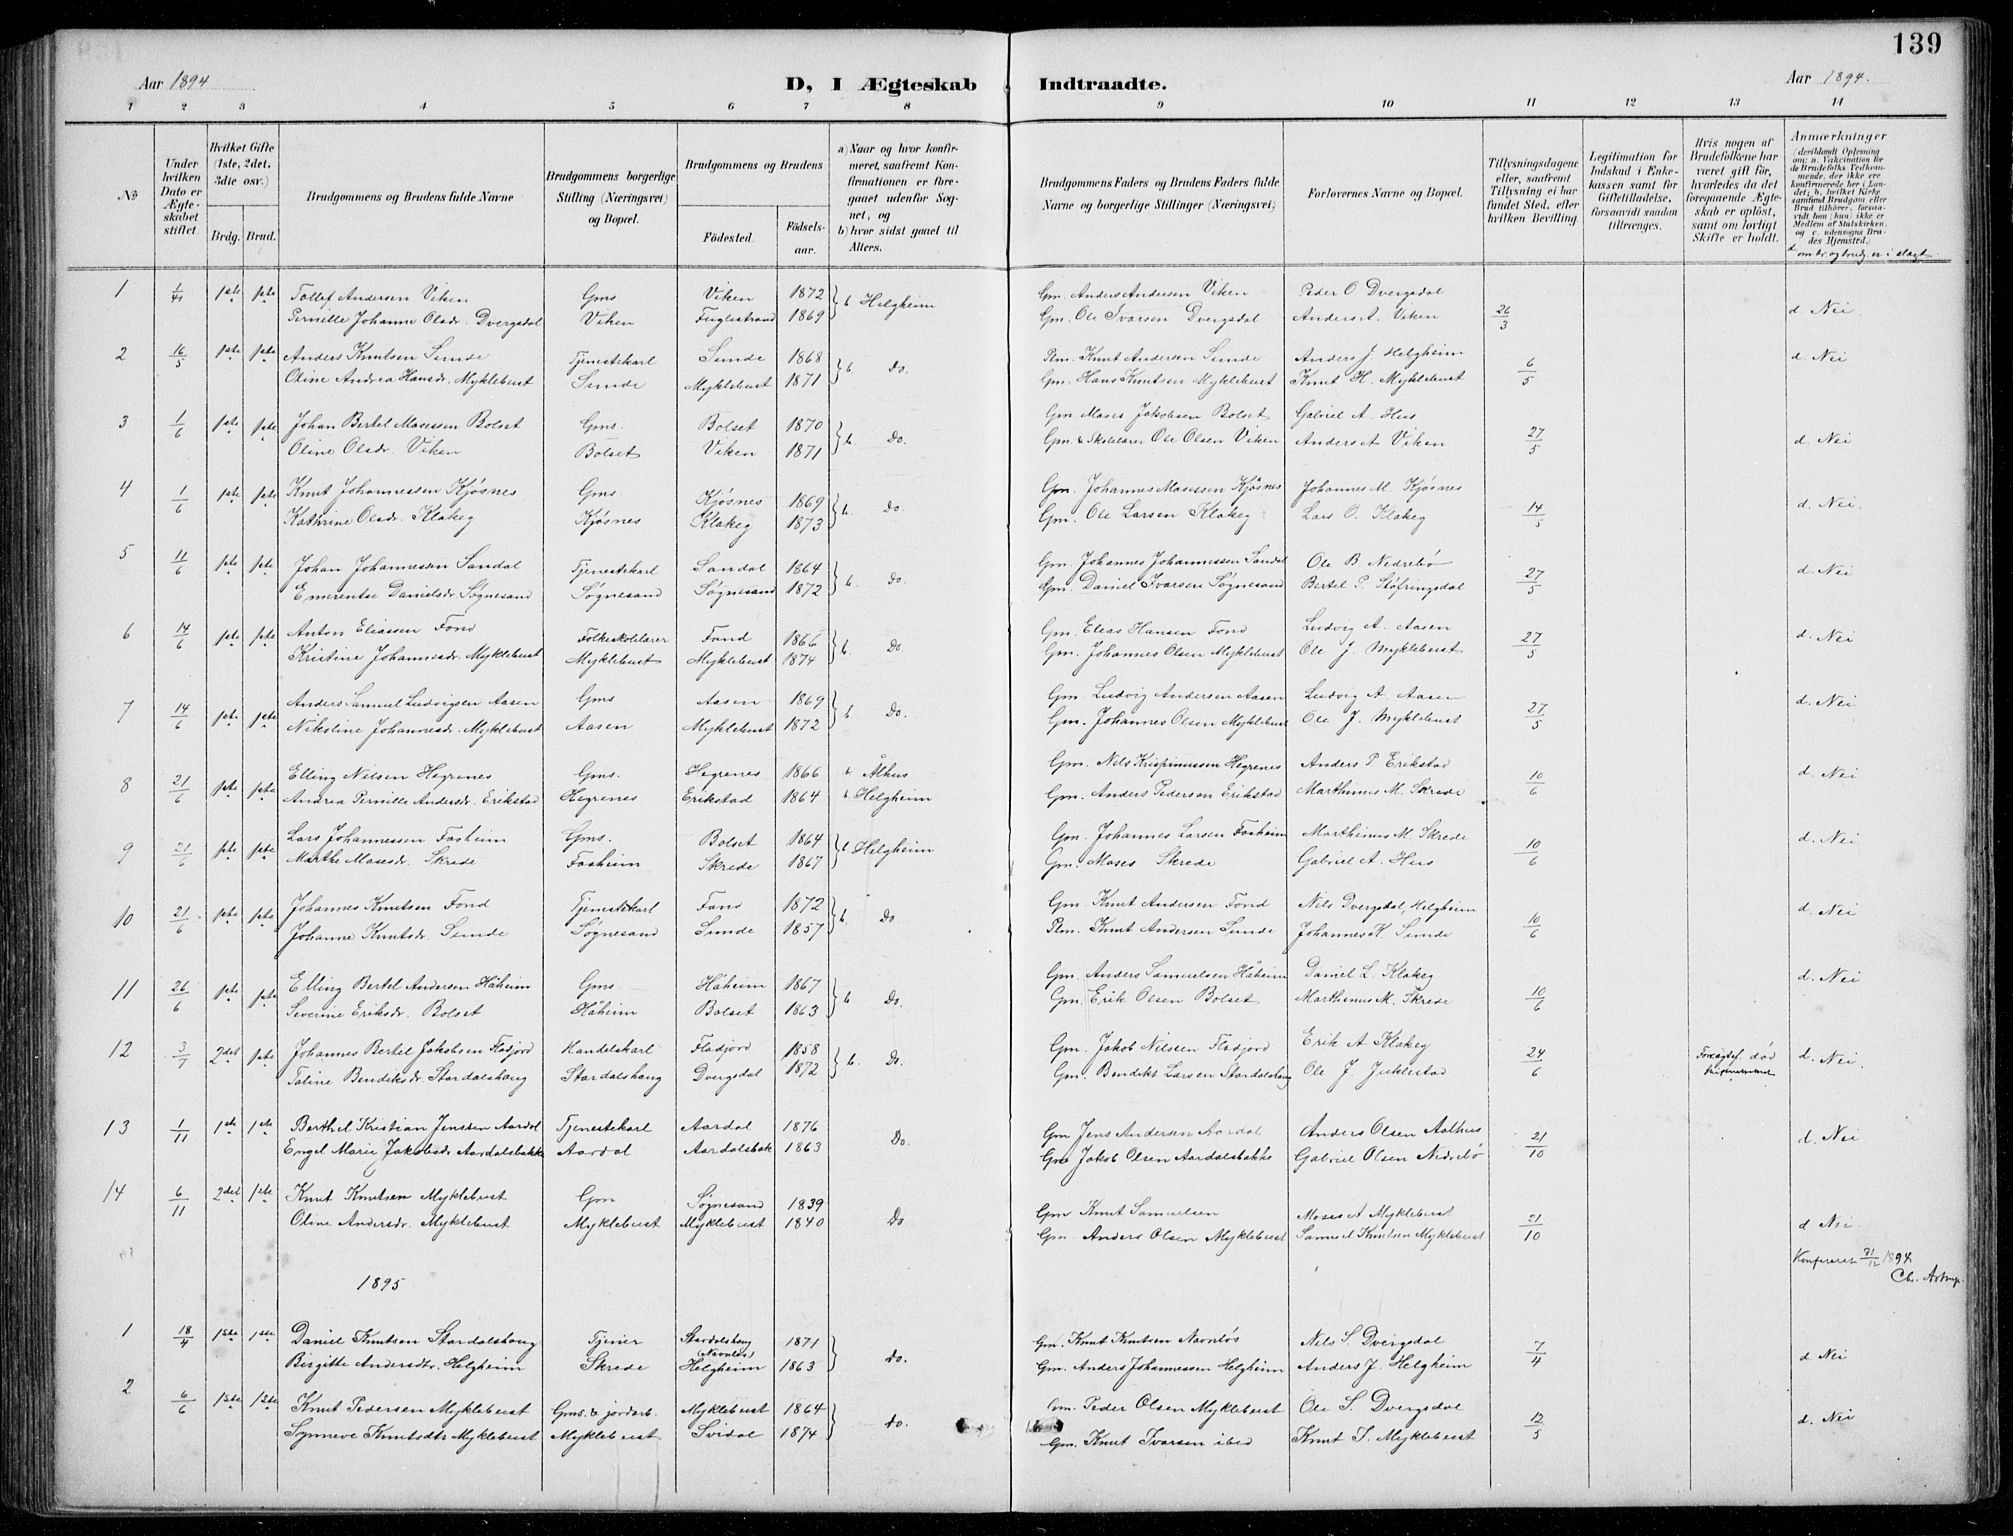 139
Aar 1894
D, I Ægteskab Indtraadte.
Aar 1894.
1 2 3 4 5 6 7 8 9 10 11 12 13 14
No.
Under hvilken Dato er Ægteskabet stiftet.
Hvilket Gifte (1ste, 2det, 3die osv.)
Brdg. Brud.
Brudgommens og Brudens fulde Navne
Brudgommens borgerlige Stilling (Næringsvei) og Bopæl.
Brudgommens og Brudens
Fødested. Fødselsaar.
a) Naar og hvor konfirmeret, saafremt Konfirmationen er foregaaet udenfor Sognet, og
b) hvor sidst gaaet til Alters.
Brudgommens Faders og Brudens Faders fulde Navne og borgerlige Stillinger (Næringsvei)
Forlovernes Navne og Bopæl.
Tillysningsdagene eller, saafremt Tillysning ei har fundet Sted, efter hvilken Bevilling.
Legitimation for Indskud i Enkekassen samt for Giftetilladelse, forsaavidt saadan tiltrænges.
Hvis nogen af Brudefolkene har været gift, hvorledes da det foregaaende Ægteskab er opløst, samt om lovligt Skifte er holdt.
Anmærkninger (deriblandt Oplysning om: a. Vakcination for de Brudefolks Vedkommende, der ikke ere konfirmerede her i Landet; b. hvilket Kirkesamfund Brudgom eller Brud tilhører, forsaavidt han (hun) ikke er Medlem af Statskirken, og c. udensogns Brudes Hjemsted.)
d om br. og brud er i slægt
1 1/4 1ste 1ste Tollef Andersen Viken Gms Viken 1872 b Helgheim Gm. Anders Andersen Viken Peder O. Dvergsdal 26/3 d Nei.
Pernille Johanne Olsdr. Dvergsdal Viken Fuglestrand 1869 Gm. Ole Ivarsen Dvergsdal Anders A. Viken
2 16/5 1ste 1ste Anders Knutsen Sunde Tjenestekarl Sunde 1868 b. Do. Plm. Knut Andersen Sunde Anders J. Helgheim 6/5 d. Nei
Oline Andrea Hansdr. Myklebust Sunde Myklebust 1871 Gm. Hans Knutsen Myklebust Knut H. Myklebust
3 1/6 1ste 1ste Johan Bertel Mosessen Bolset Gms. Bolset 1870 b. Do. Gm. Moses Jakobsen Bolset Gabriel A. Hus 27/5 d. Nei
Oline Olsdr. Viken Bolset Viken 1871 Gm. & Skolelærer Ole Olsen Viken Anders A Viken
4 1/6 1ste 1ste Knut Johannessen Kjøsnes Gms. Kjøsnes 1869 b. Do. Gm. Johannes Mosessen Kjøsnes Johannes M. Kjøsnes 14/5 d. Nei
Kathrine Olsdr. Klakeg Kjøsnes Klakeg 1873 Gm. Ole Larsen Klakeg Lars O. Klakeg
5 11/6 1ste 1ste Johan Johannessen Sandal Tjenestekarl Sandal 1864 b. Do. Gm. Johannes Johannessen Sandal Ole B. Nedrebø 27/5 d. Nei
Emerentse Danielsdr. Søgnesand Søgnesand Søgnesand 1872 Gm. Daniel Ivarsen Søgnesand Bertel P. Støfringsdal
6 14/6 1ste 1ste Anton Eliassen Fond Folkeskolelærer Fond 1866 b. Do. Gm. Elias Hansen Fond Ludvig A. Aasen 27/5 d. Nei
Kristine Johannesdr. Myklebust Myklebust Myklebust 1874 Gm. Johannes Olsen Myklebust Ole J. Myklebust
7 14/6 1ste 1ste Anders Samuel Ludvigsen Aasen Gms Aasen 1869 b Do. Gm. Ludvig Andersen Aasen Ludvig A. Aasen 27/5 d. Nei
Nikoline Johannesdr. Myklebust Aasen Myklebust 1872 Gm. Johannes Olsen Myklebust Ole J. Myklebust
8 21/6 1ste 1ste Elling Nilsen Hegrenes Gms. Hegrenes 1866 b Ålhus Gm. Nils Krispinussen Hegrenes Anders P. Erikstad 10/6 d. Nei
Andrea Pernille Andersdr. Erikstad Hegrenes Erikstad 1864 b. Helgheim Gm. Anders Pedersen Erikstad Marthinus M. Skrede
9 21/6 1ste 1ste Lars Johannessen Fosheim Gms. Bolset 1864 b Helgheim Gm. Johannes Larsen Fosheim Marthinus M. Skrede 10/6 d. Nei
Marthe Mosesdr. Skrede Fosheim Skrede 1867 Gm. Moses Skrede Gabriel A. Hus
10 21/6 1ste 1ste Johannes Knutsen Fond Tjenestekarl Fond 1872 b. Do Gm. Knut Andersen Fond Nils Dvergsdal, Helgheim 10/6 d. Nei
Johanne Knutsdr. Sunde Søgnesand Sunde 1857 Plm. Knut Andersen Sunde Johannes K. Sunde
11 26/6 1ste 1ste Elling Bertel Andersen Håheim Gms Håheim 1867 b Do. Gm. Anders Samuelsen Håheim Daniel L. Klakeg 10/6 d. Nei
Severine Eriksdr. Bolset Håheim Bolset 1863 Gm. Erik Olsen Bolset Marthinus M. Skrede
12 3/7 2det 1ste Johannes Bertel Jakobsen Fladjord Handelskarl Fladjord 1858 b. Do. Gm. Jakob Nilssen Fladjord Erik A Klakeg 24/6 død d. Nei.
Taline Bendiksdr. Stardalshaug Stardalshaug Dvergsdal 1872 Gm. Bendikt Larsen Stardalshaug Ole J. Juklestad
13 1/11 1ste 1ste Berthel Kristian Jenssen Aardal Tjenestekarl Aardal 1876 Do. Gm Jens Andersen Aardal Anders Olsen Aalhus 21/10 d. Nei
Engel Marie Jakobsdr Aardalsbakke Aardal Aardalsbak 1863 Gm Jakob Olsen Aardalsbakke Gabriel Olsen Nedrebø
14 6/11 2det 1ste Knut Knutsen Myklebust Gm Søgnesand 1839 Do. Gm Knut Samuelsen Moses A Myklebust 21/10 d Nei.
Oline Andersdr. Myklebust Myklebust Myklebust 1840 Gm. Anders Olsen Myklebust Samuel Knutsen Myklebust
Konfereret 31/12 1894
Chr. Astrup.
1895
1 18/4 1ste 1ste Daniel Knutsen Stardalshaug Tjener Stardalshaug (Navnløs) 1871 Do. Gm. Knut Knutsen Navnløs Nils S. Dvergsdal 7/4 d Nei
Birgitte Andersdtr. Helgheim Skrede Helgheim 1863 Gm. Anders Johannessen Helgheim Anders J. Helgheim
2 6/6 1ste 1ste Knut Pedersen Myklebust Gms. & jordarb. Myklebust 1864 Do. Gm. Peder Olsen Myklebust Ole S. Dvergsdal 12/5 d. Nei
Synneve Knutsdtr Myklebust Myklebust Svidal 1874 Gm. Knut Ivarsen ibid Knut S. Myklebust